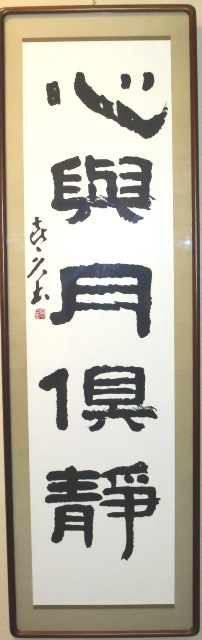 心與月俱靜